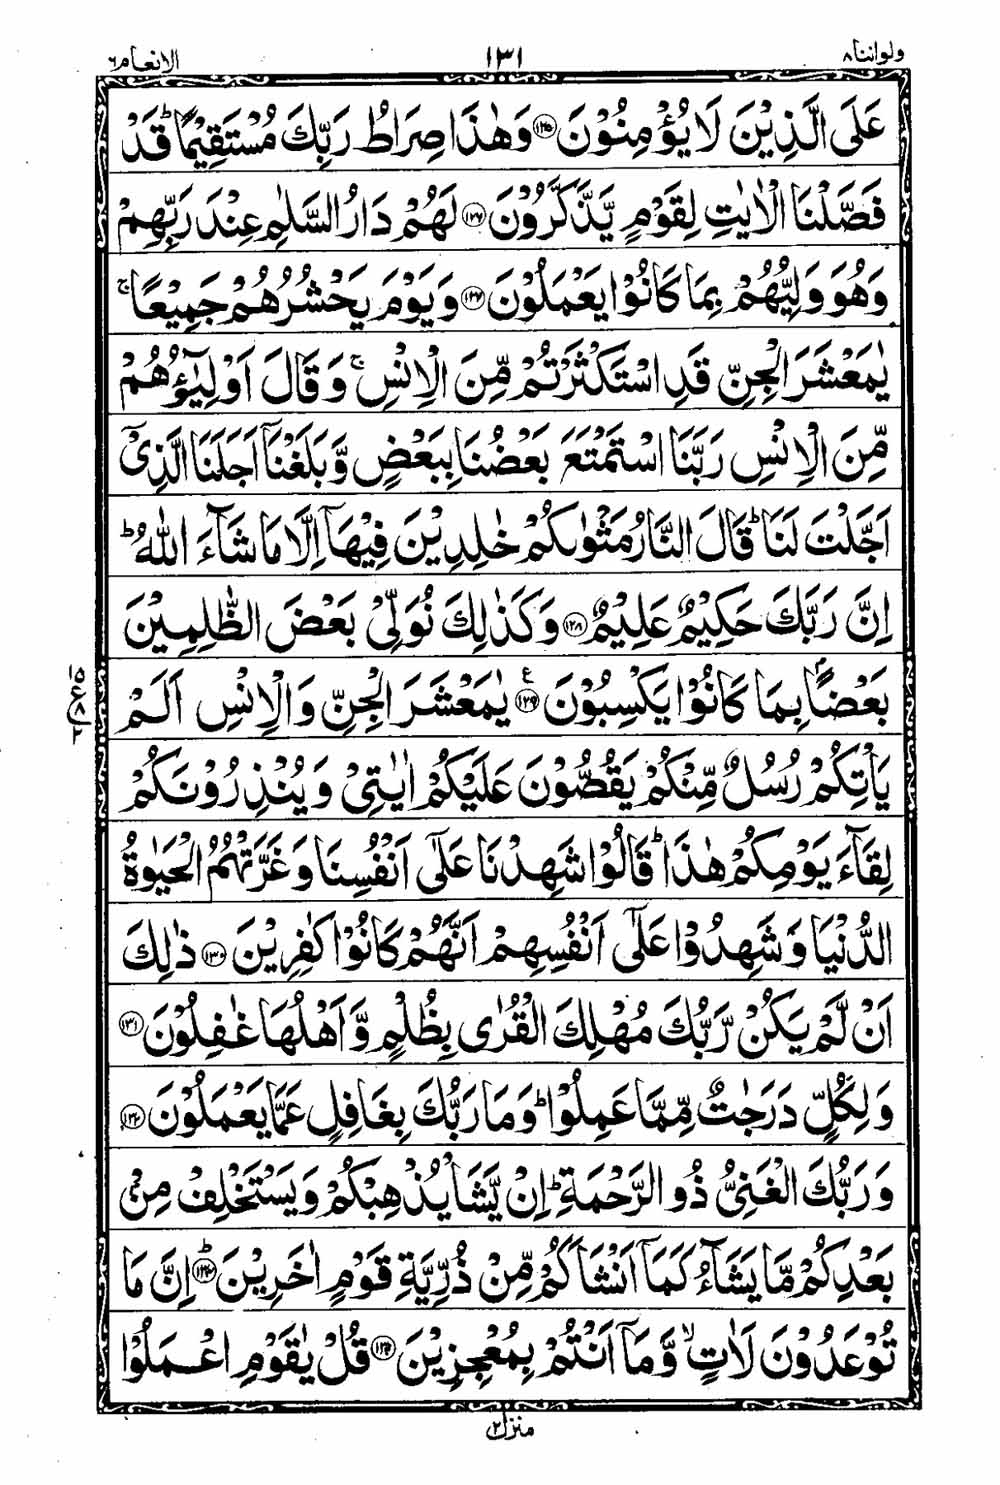 ولواننا ٨
١٣١
الانعام ٦
عَلَى الَّذِيْنَ لَا يُؤْمِنُوْنَ ﴿١٢٥﴾ وَهٰذَا صِرَاطُ رَبِّكَ مُسْتَقِيْمًا ؕ قَدْ
فَصَّلْنَا الْاٰيٰتِ لِقَوْمٍ يَّذَّكَّرُوْنَ ﴿١٢٦﴾ لَهُمْ دَارُ السَّلٰمِ عِنْدَ رَبِّهِمْ
وَهُوَ وَلِيُّهُمْ بِمَا كَانُوْا يَعْمَلُوْنَ ﴿١٢٧﴾ وَيَوْمَ يَحْشُرُهُمْ جَمِيْعًا ۚ
يٰمَعْشَرَ الْجِنِّ قَدِ اسْتَكْثَرْتُمْ مِّنَ الْاِنْسِ ۚ وَقَالَ اَوْلِيٰٓؤُهُمْ
مِّنَ الْاِنْسِ رَبَّنَا اسْتَمْتَعَ بَعْضُنَا بِبَعْضٍ وَّبَلَغْنَاۤ اَجَلَنَا الَّذِيْۤ
اَجَّلْتَ لَنَا ؕ قَالَ النَّارُ مَثْوٰىكُمْ خٰلِدِيْنَ فِيْهَاۤ اِلَّا مَا شَآءَ اللّٰهُ ؕ
اِنَّ رَبَّكَ حَكِيْمٌ عَلِيْمٌ ﴿١٢٨﴾ وَكَذٰلِكَ نُوَلِّيْ بَعْضَ الظّٰلِمِيْنَ
بَعْضًۢا بِمَا كَانُوْا يَكْسِبُوْنَ ﴿١٢٩﴾ ع يٰمَعْشَرَ الْجِنِّ وَالْاِنْسِ اَلَمْ
يَاْتِكُمْ رُسُلٌ مِّنْكُمْ يَقُصُّوْنَ عَلَيْكُمْ اٰيٰتِيْ وَيُنْذِرُوْنَكُمْ
لِقَآءَ يَوْمِكُمْ هٰذَا ؕ قَالُوْا شَهِدْنَا عَلٰۤى اَنْفُسِنَا وَغَرَّتْهُمُ الْحَيٰوةُ
الدُّنْيَا وَشَهِدُوْا عَلٰۤى اَنْفُسِهِمْ اَنَّهُمْ كَانُوْا كٰفِرِيْنَ ﴿١٣٠﴾ ذٰلِكَ
اَنْ لَّمْ يَكُنْ رَّبُّكَ مُهْلِكَ الْقُرٰى بِظُلْمٍ وَّاَهْلُهَا غٰفِلُوْنَ ﴿١٣١﴾
وَلِكُلٍّ دَرَجٰتٌ مِّمَّا عَمِلُوْا ؕ وَمَا رَبُّكَ بِغَافِلٍ عَمَّا يَعْمَلُوْنَ ﴿١٣٢﴾
وَرَبُّكَ الْغَنِيُّ ذُو الرَّحْمَةِ ؕ اِنْ يَّشَاْ يُذْهِبْكُمْ وَيَسْتَخْلِفْ مِنْۢ
بَعْدِكُمْ مَّا يَشَآءُ كَمَاۤ اَنْشَاَكُمْ مِّنْ ذُرِّيَّةِ قَوْمٍ اٰخَرِيْنَ ؕ﴿١٣٣﴾ اِنَّ مَا
تُوْعَدُوْنَ لَاٰتٍ ۙ وَّمَاۤ اَنْتُمْ بِمُعْجِزِيْنَ ﴿١٣٤﴾ قُلْ يٰقَوْمِ اعْمَلُوْا
١٥
ع ٨
٢
منزل ٢